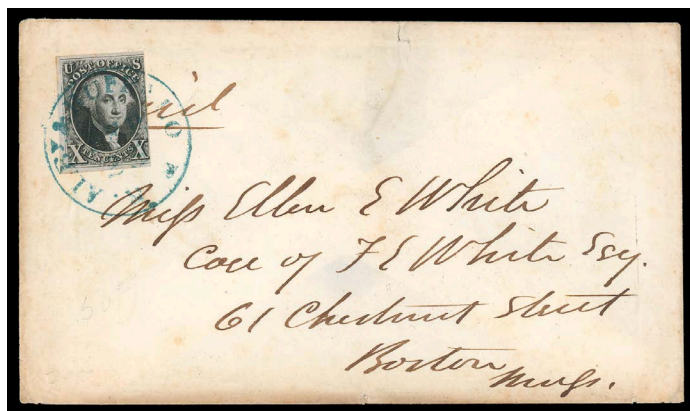 U S
POST OFFICE
X TEN CENTS X
Miss Ellen E White
Care of F E White Esq.
61 Chestnut Street
Boston
Mass.